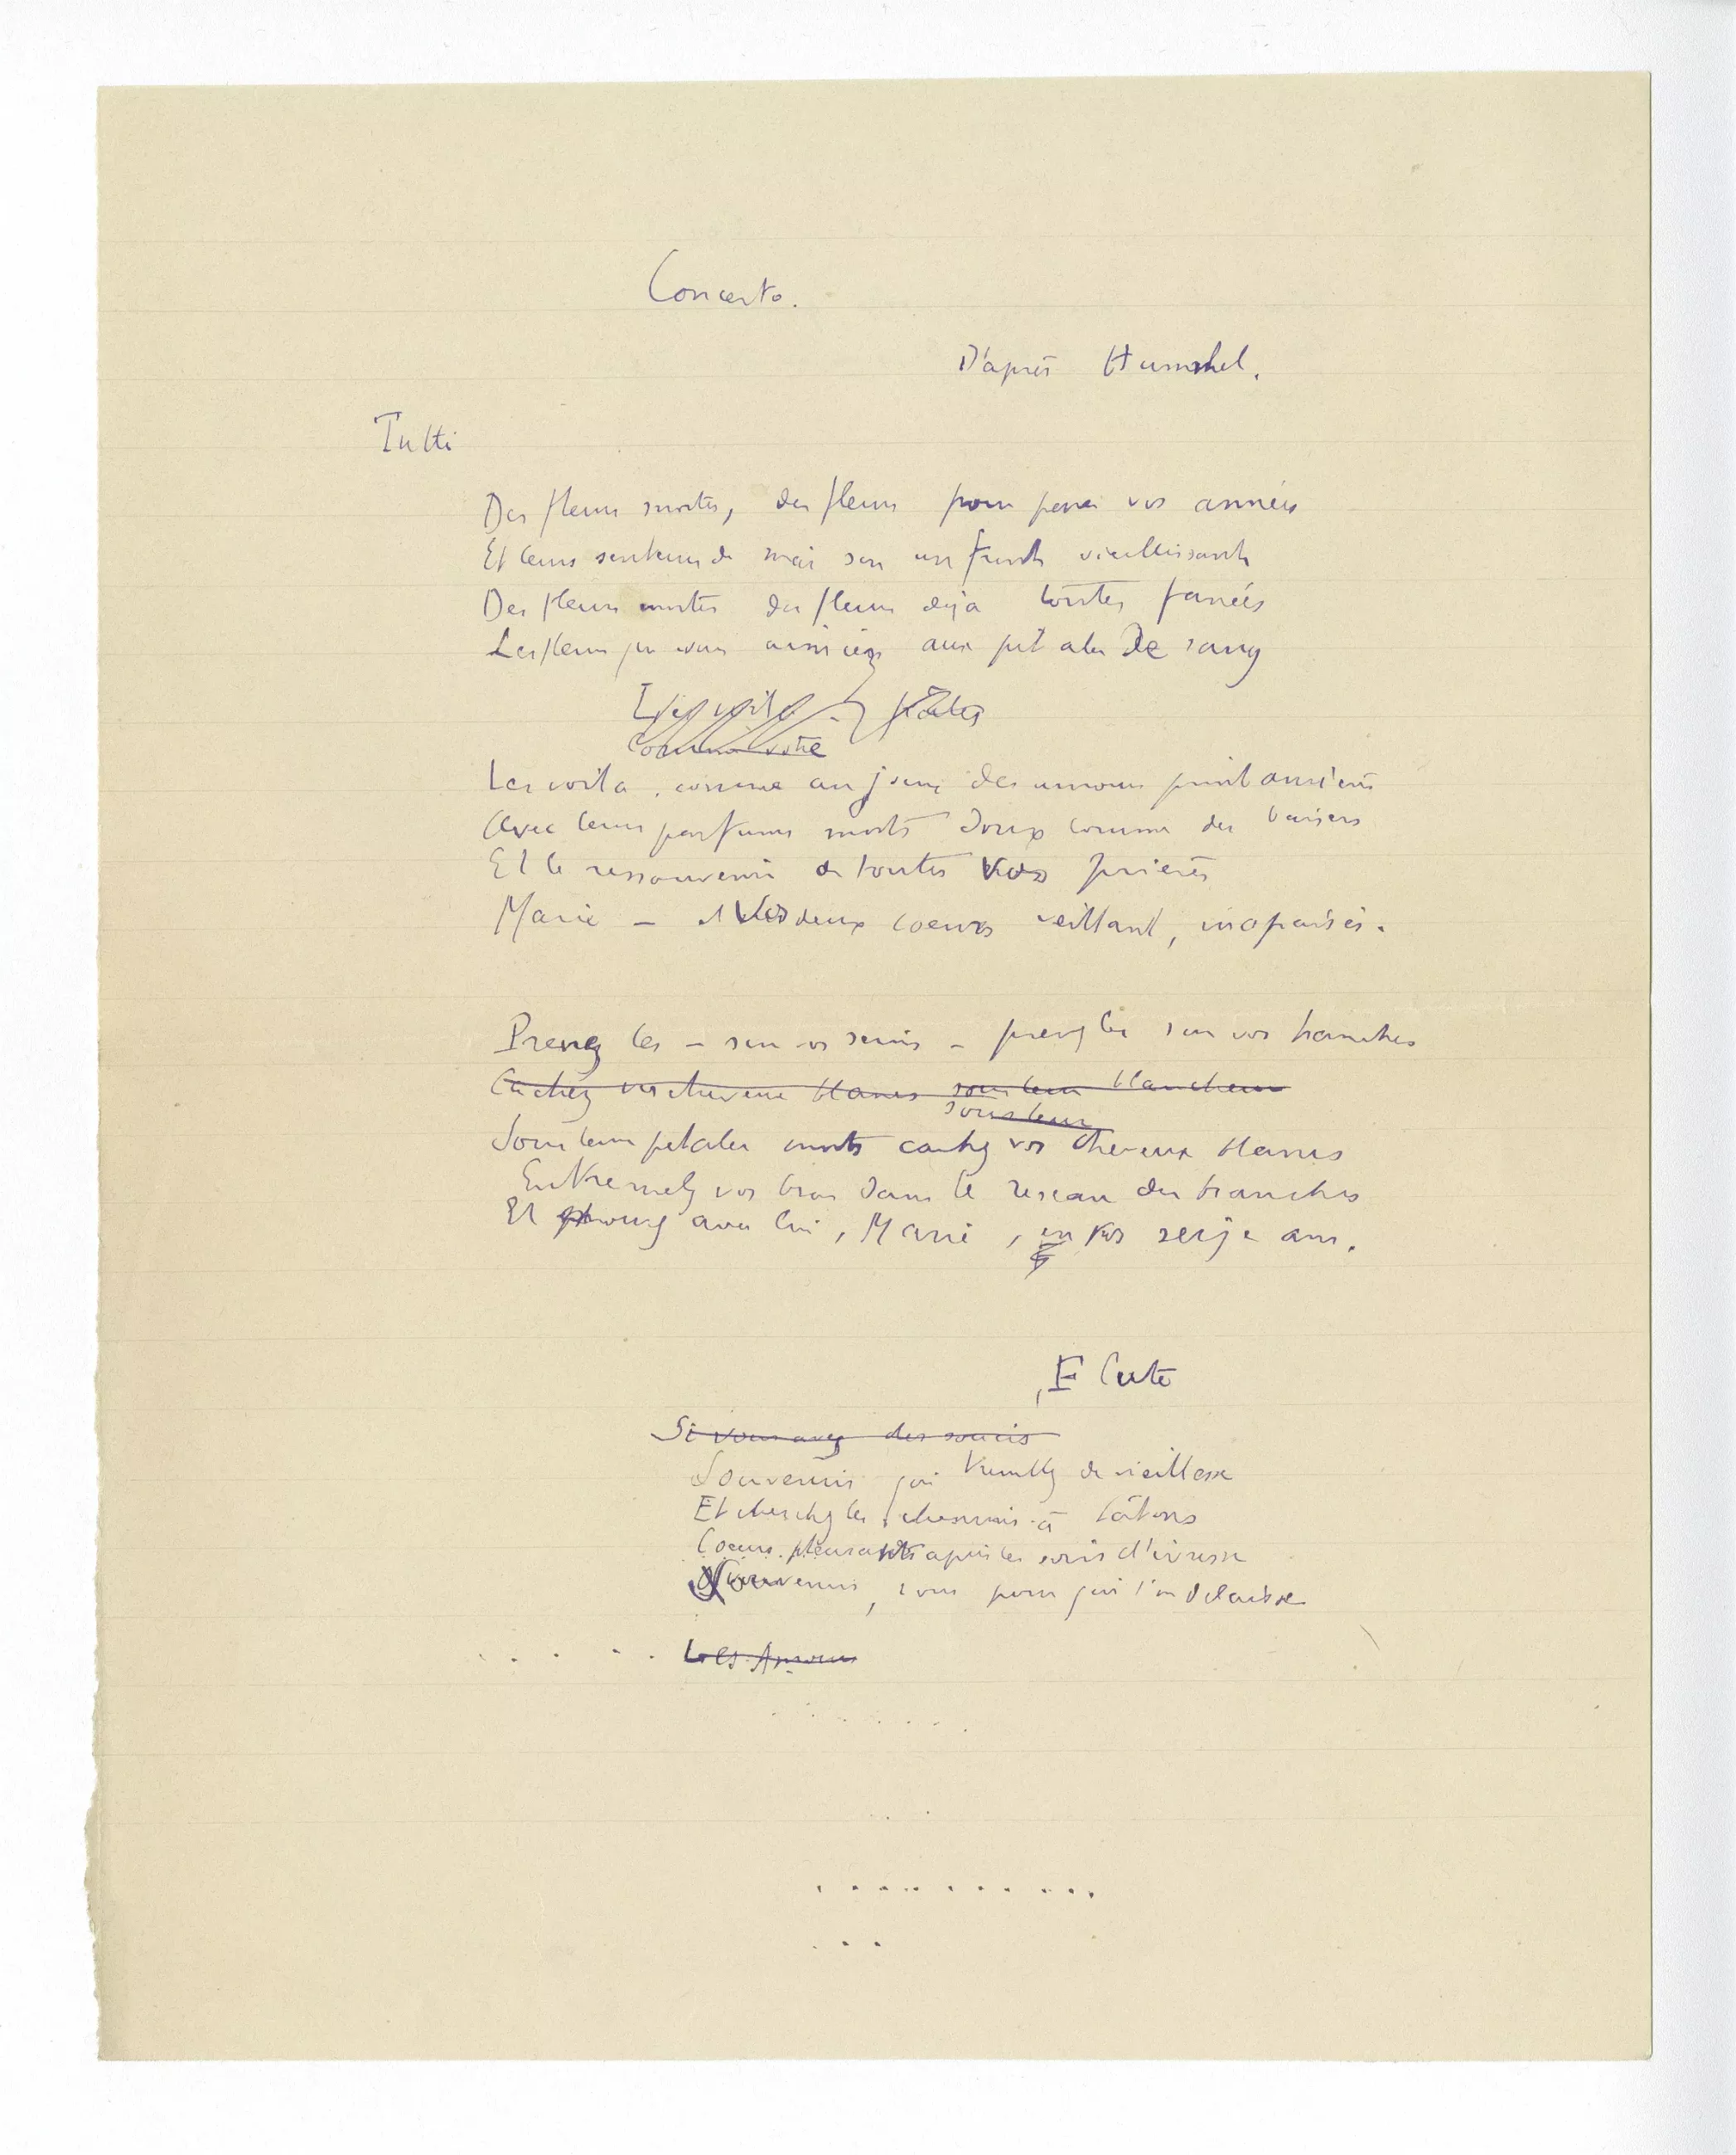 Concerto.
D'après Hummel.
Tutti
Des fleurs mortes, des fleurs pour parer vos années
Et leurs senteurs de mai sur un front vieillissant
Des fleurs mortes des fleurs déjà toutes fanées
Les fleurs que vous aimiez aux pétales De sang
Les voilà
Comme votre
Les voila, comme au jour des amours printanières
Avec leurs parfums morts doux comme des baisers
Et le ressouvenir de toutes vos prières
Marie – et vos deux coeurs veillant, inapaisés.
Prenez les – sur vos seins – prenez les sur vos hanches
Cachez vos cheveux blancs sous leur blancheur
sous leur
Sous leurs pétales morts cachez vos cheveux blancs
Entremelez vos bras dans le reseau des branches
Et avec lui, Marie, vos seize ans.
Flute
Si vous avez des soucis
Souvenirs qui tremblez de vieillesse
Et cherchez les chemins à tâtons
Coeurs pleurants après les soirs d'ivresse
Souvenirs, vous pour qui l'on délaisse
. . . . . Les Amours
. . . . . . .
. .
. . . . . . . . . .
. . .